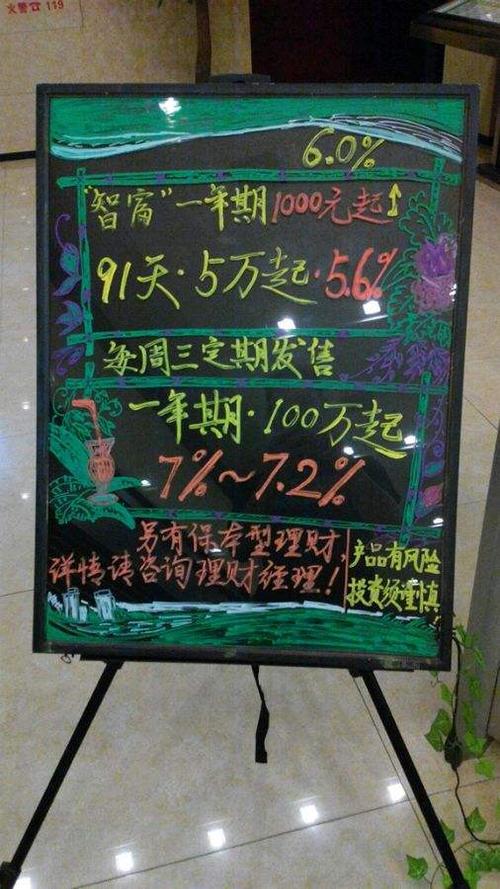 火警☎119
6.0%
“智富”一年期1000元起↑
91天·5万起·5.6%
每周三定期发售
一年期·100万起
7%~7.2%
另有保本型理财,
详情请咨询理财经理!
产品有风险
投资须谨慎!